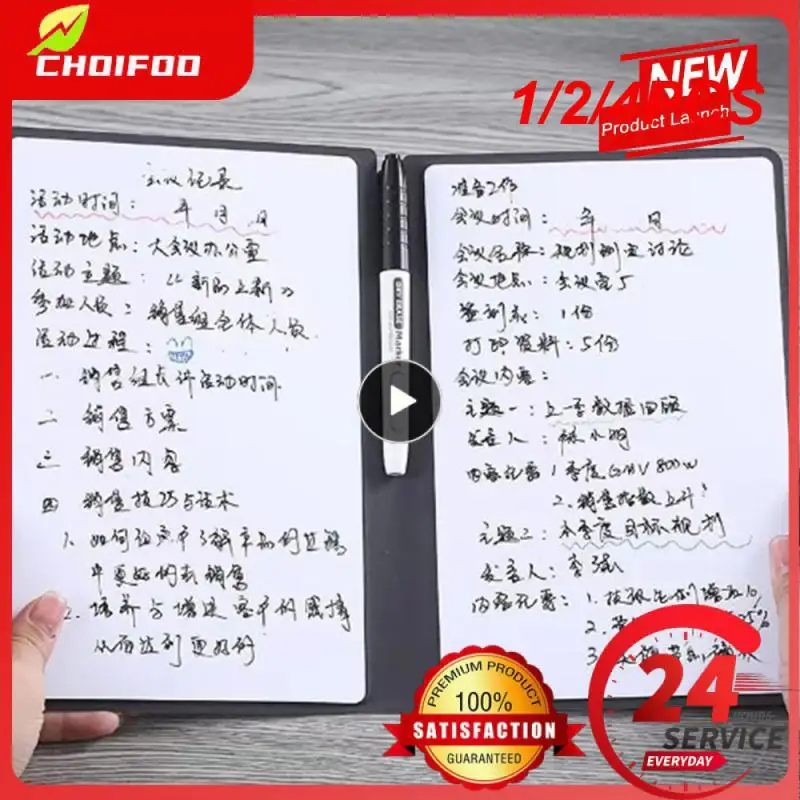 CHOIFOO
NEW
1/2/4PCS
Product Launch
会议记录
活动时间： 年 月 日
活动地点：大会议办公室
活动主题：
参加人员：销售组全体人员
活动过程：
一 销售组长讲活动时间
二 销售方案
三 销售内容
四 销售技巧与话术
1、如何
2. 培养与增进客户的感情
从而达到更好的
准备工作
会议时间： 年 月
会议名称：规划制定讨论
会议地点：会议室5
签到表：1份
打印资料：5份
会议内容：
主题一：上一季数据回顾
发言人：林小明
内容纪要 1季度GMV 800W
2.销售指数上升
主题二：本季度目标规划
发言人：李强
内容纪要：1.
2.
3.
Marker
PREMIUM PRODUCT
100%
SATISFACTION
GUARANTEED
24
HOURS
SERVICE
EVERYDAY